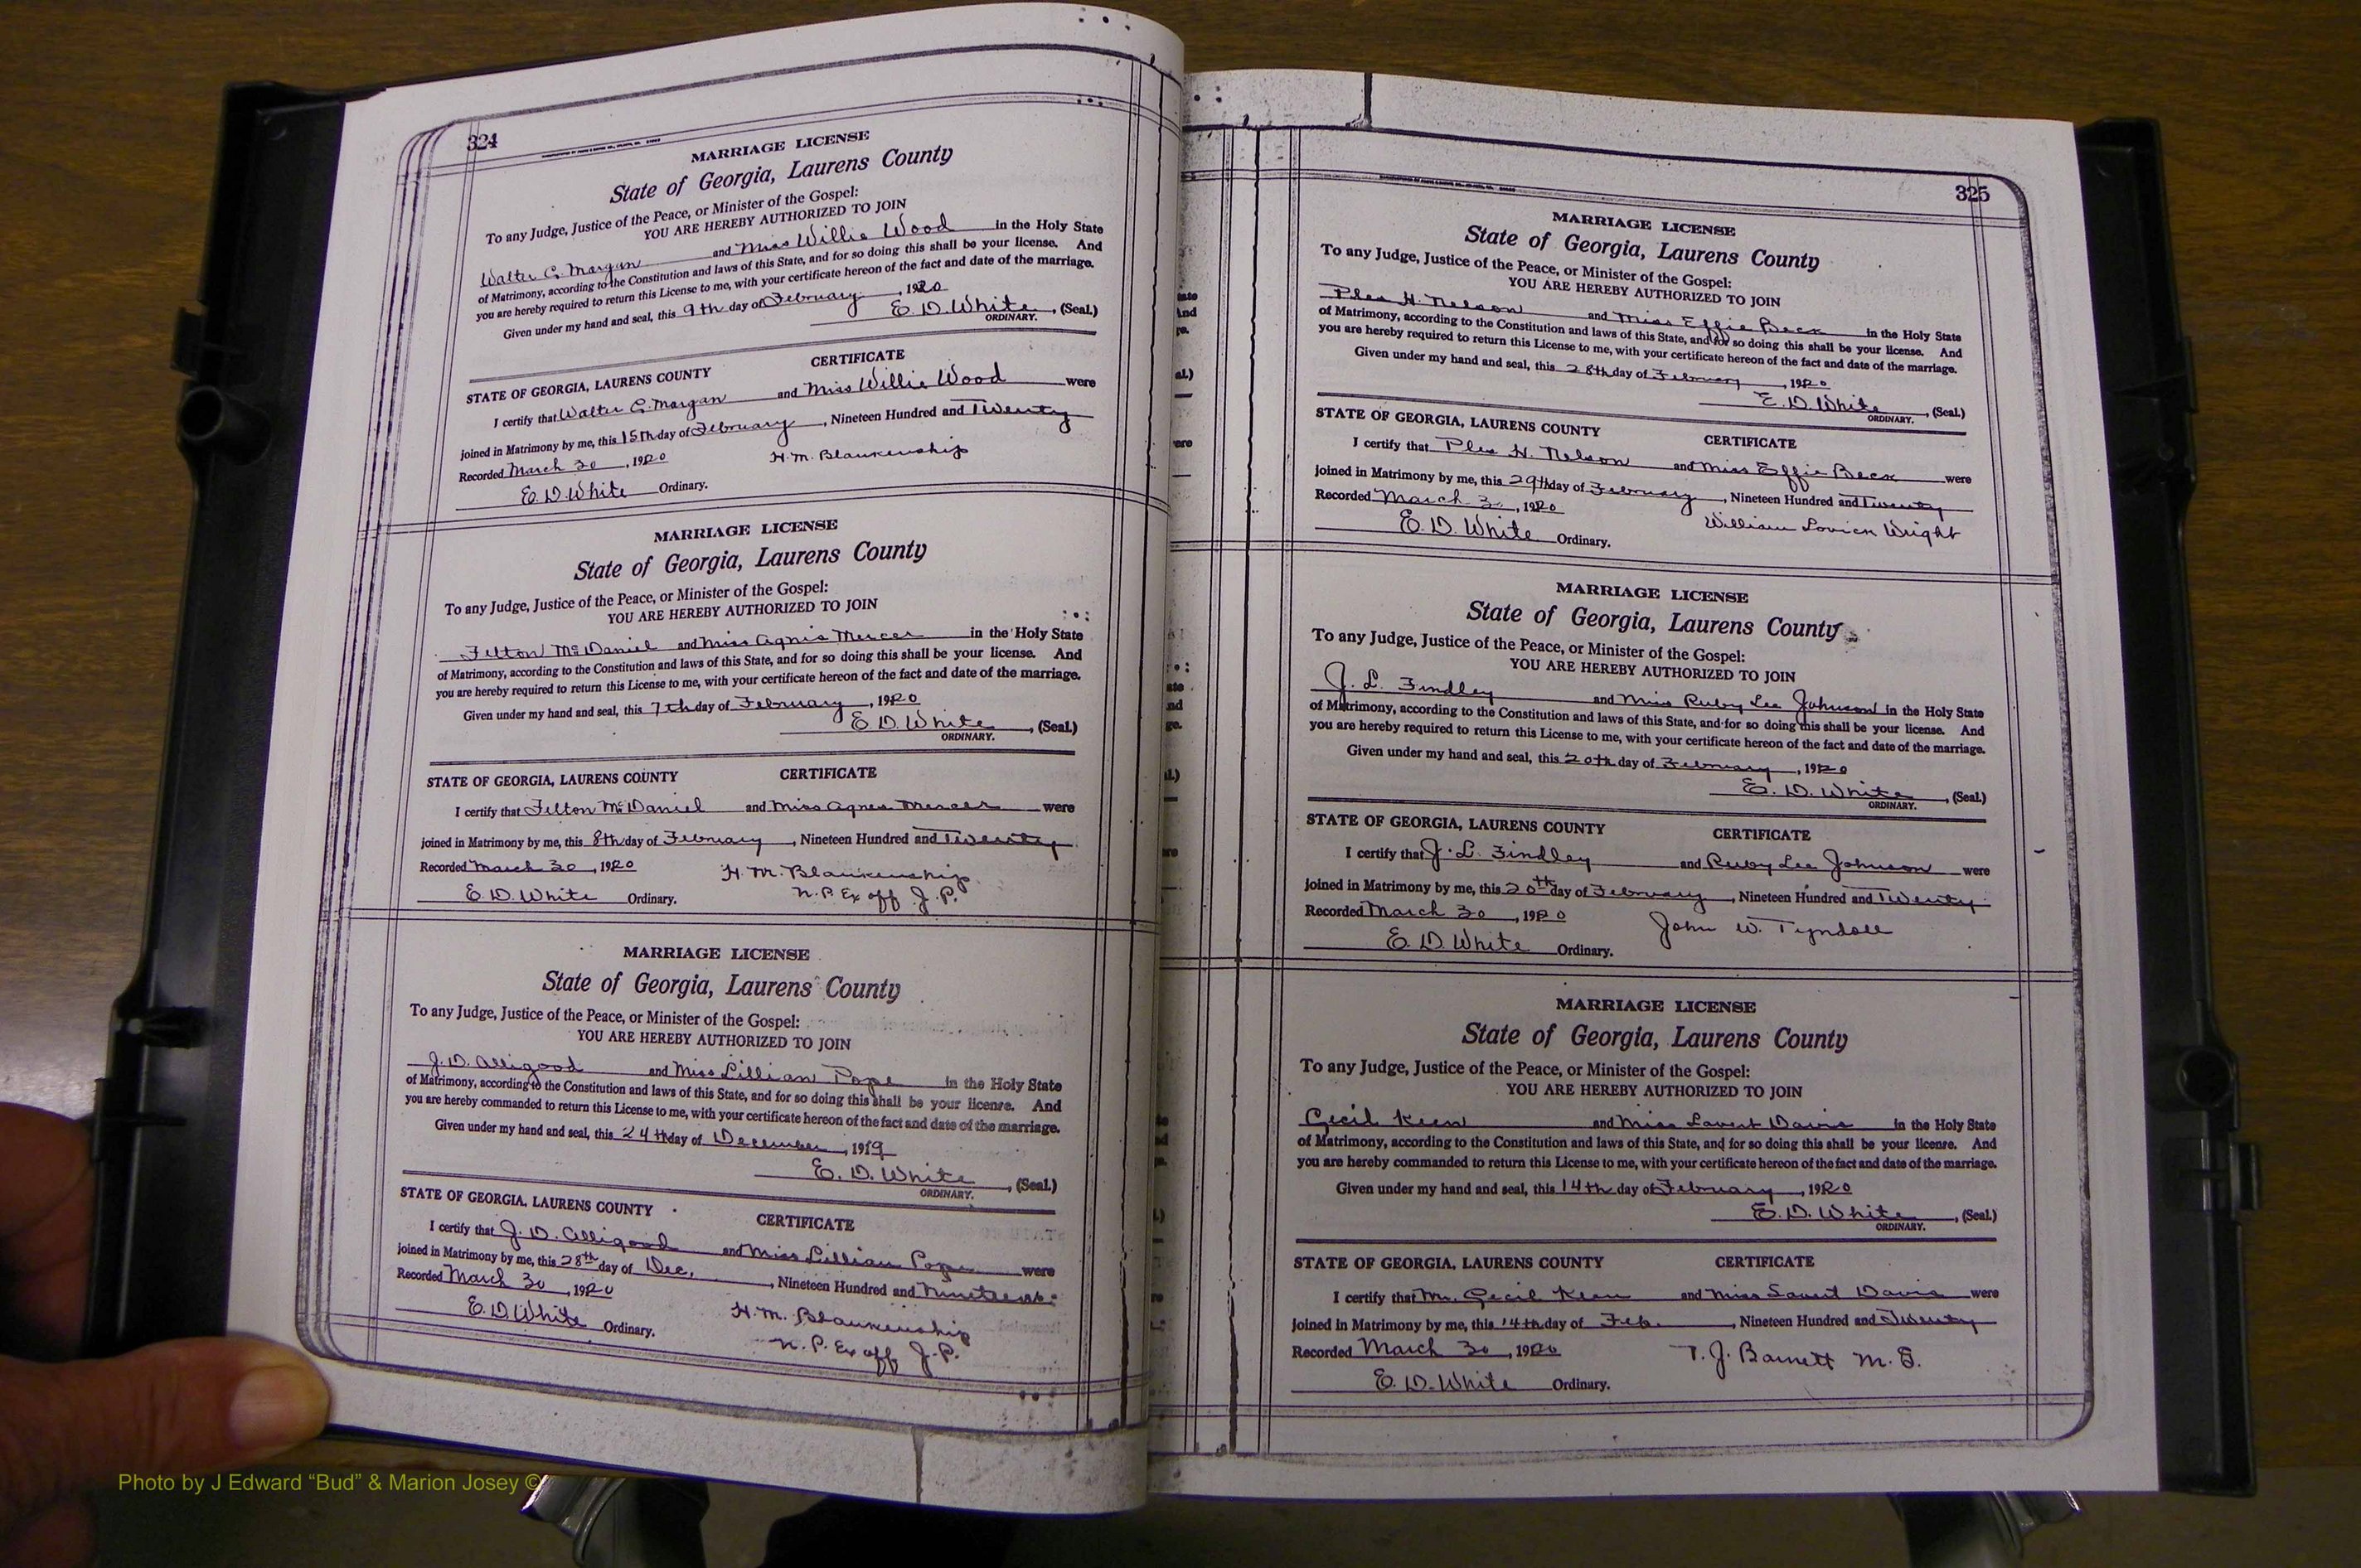 324
MARRIAGE LICENSE
State of Georgia, Laurens County
To any Judge, Justice of the Peace, or Minister of the Gospel:
YOU ARE HEREBY AUTHORIZED TO JOIN
Walter C. Morgan and Miss Willie Wood in the Holy State
of Matrimony, according to the Constitution and laws of this State, and for so doing this shall be your license. And
you are hereby required to return this License to me, with your certificate hereon of the fact and date of the marriage.
Given under my hand and seal, this 9th day of February, 1920
E. D. White, (Seal.)
ORDINARY.
STATE OF GEORGIA, LAURENS COUNTY CERTIFICATE
I certify that Walter C. Morgan and Miss Willie Wood were
joined in Matrimony by me, this 15th day of February, Nineteen Hundred and Twenty
Recorded March 30, 1920 H. M. Blankenship
E. D. White Ordinary.
MARRIAGE LICENSE
State of Georgia, Laurens County
To any Judge, Justice of the Peace, or Minister of the Gospel:
YOU ARE HEREBY AUTHORIZED TO JOIN
Felton McDaniel and Miss Agnis Mercer in the Holy State
of Matrimony, according to the Constitution and laws of this State, and for so doing this shall be your license. And
you are hereby required to return this License to me, with your certificate hereon of the fact and date of the marriage.
Given under my hand and seal, this 7th day of February, 1920
E. D. White, (Seal.)
ORDINARY.
STATE OF GEORGIA, LAURENS COUNTY CERTIFICATE
I certify that Felton McDaniel and Miss Agnes Mercer were
joined in Matrimony by me, this 8th day of February, Nineteen Hundred and Twenty
Recorded March 30, 1920 H. M. Blankenship
E. D. White Ordinary. N. P. Ex off J. P.
MARRIAGE LICENSE
State of Georgia, Laurens County
To any Judge, Justice of the Peace, or Minister of the Gospel:
YOU ARE HEREBY AUTHORIZED TO JOIN
J. D. Alligood and Miss Lillian Pope in the Holy State
of Matrimony, according to the Constitution and laws of this State, and for so doing this shall be your license. And
you are hereby commanded to return this License to me, with your certificate hereon of the fact and date of the marriage.
Given under my hand and seal, this 24th day of December, 1919
E. D. White, (Seal.)
ORDINARY.
STATE OF GEORGIA, LAURENS COUNTY CERTIFICATE
I certify that J. D. Alligood and Miss Lillian Pope were
joined in Matrimony by me, this 28th day of Dec., Nineteen Hundred and Nineteen
Recorded March 30, 1920 H. M. Blankenship
E. D. White Ordinary. N. P. Ex off J. P.
325
MARRIAGE LICENSE
State of Georgia, Laurens County
To any Judge, Justice of the Peace, or Minister of the Gospel:
YOU ARE HEREBY AUTHORIZED TO JOIN
Plea H. Nelson and Miss Effie Beck in the Holy State
of Matrimony, according to the Constitution and laws of this State, and for so doing this shall be your license. And
you are hereby required to return this License to me, with your certificate hereon of the fact and date of the marriage.
Given under my hand and seal, this 28th day of February, 1920
E. D. White, (Seal.)
ORDINARY.
STATE OF GEORGIA, LAURENS COUNTY CERTIFICATE
I certify that Plea H. Nelson and Miss Effie Beck were
joined in Matrimony by me, this 29th day of February, Nineteen Hundred and Twenty
Recorded March 3, 1920 William Lovick Wright
E. D. White Ordinary.
MARRIAGE LICENSE
State of Georgia, Laurens County
To any Judge, Justice of the Peace, or Minister of the Gospel:
YOU ARE HEREBY AUTHORIZED TO JOIN
J. L. Findley and Miss Ruby Lee Johnson in the Holy State
of Matrimony, according to the Constitution and laws of this State, and for so doing this shall be your license. And
you are hereby required to return this License to me, with your certificate hereon of the fact and date of the marriage.
Given under my hand and seal, this 20th day of February, 1920
E. D. White, (Seal.)
ORDINARY.
STATE OF GEORGIA, LAURENS COUNTY CERTIFICATE
I certify that J. L. Findley and Ruby Lee Johnson were
joined in Matrimony by me, this 20th day of February, Nineteen Hundred and Twenty
Recorded March 30, 1920 John W. Tyndall
E. D. White Ordinary.
MARRIAGE LICENSE
State of Georgia, Laurens County
To any Judge, Justice of the Peace, or Minister of the Gospel:
YOU ARE HEREBY AUTHORIZED TO JOIN
Cecil Keen and Miss Davis in the Holy State
of Matrimony, according to the Constitution and laws of this State, and for so doing this shall be your license. And
you are hereby commanded to return this License to me, with your certificate hereon of the fact and date of the marriage.
Given under my hand and seal, this 14th day of February, 1920
E. D. White, (Seal.)
ORDINARY.
STATE OF GEORGIA, LAURENS COUNTY CERTIFICATE
I certify that Mr. Cecil Keen and Miss Davis were
joined in Matrimony by me, this 14th day of Feb., Nineteen Hundred and Twenty
Recorded March 30, 1920 T. J. Barnett M. G.
E. D. White Ordinary.
Photo by J Edward “Bud” & Marion Josey ©